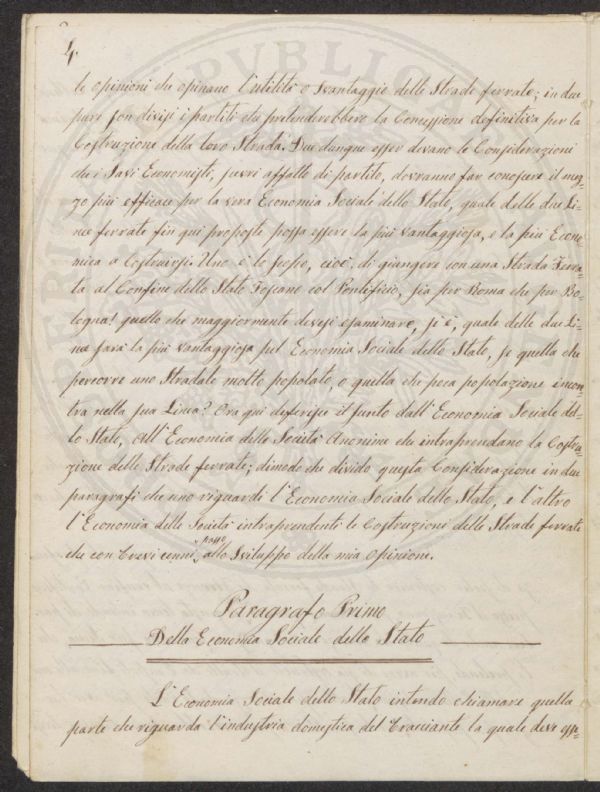 4.
le opinioni che opinano l'utilità o Svantaggio delle Strade ferrate; in due
pure son divisi i partiti che pretenderebbero la Concessione definitiva per la
Costruzione della loro Strada. Due dunque esser devono le Considerazioni
che i Savi Economisti, fuori affatto di partito, dovranno far conoscere il mez-
zo più efficace per la vera Economia Sociale dello Stato, quale delle due Li-
nee ferrate fin qui proposte possa essere la più Vantaggiosa, e la più Econo-
mica a Costruirsi. Uno è lo scopo, cioè, di giungere con una Strada Ferra-
ta al Confine dello Stato Toscano col Pontificio, sia per Roma che per Bo-
logna! quello che maggiormente devesi esaminare, si è, quale delle due Li-
nee sarà la più Vantaggiosa pel Economia Sociale dello Stato, se quella che
percorre uno Stradale molto popolato, o quella che poca popolazione incon-
tra nella sua Linea? Ora qui differisce il punto dall'Economia Sociale del-
lo Stato, All'Economia delle Società Anonime che intraprendano la Costru-
zione delle Strade ferrate; dimodo che divido questa Considerazione in due
paragrafi che uno riguardi l'Economia Sociale dello Stato, e l'altro
l'Economia delle Società intraprendenti le Costruzioni delle Strade ferrate
che con brevi cenni passo allo Sviluppo della mia Opinione.
Paragrafo Primo
Della Economia Sociale dello Stato
L'Economia Sociale dello Stato intendo chiamare quella
parte che riguarda l'industria domestica del bracciante la quale deve esse-